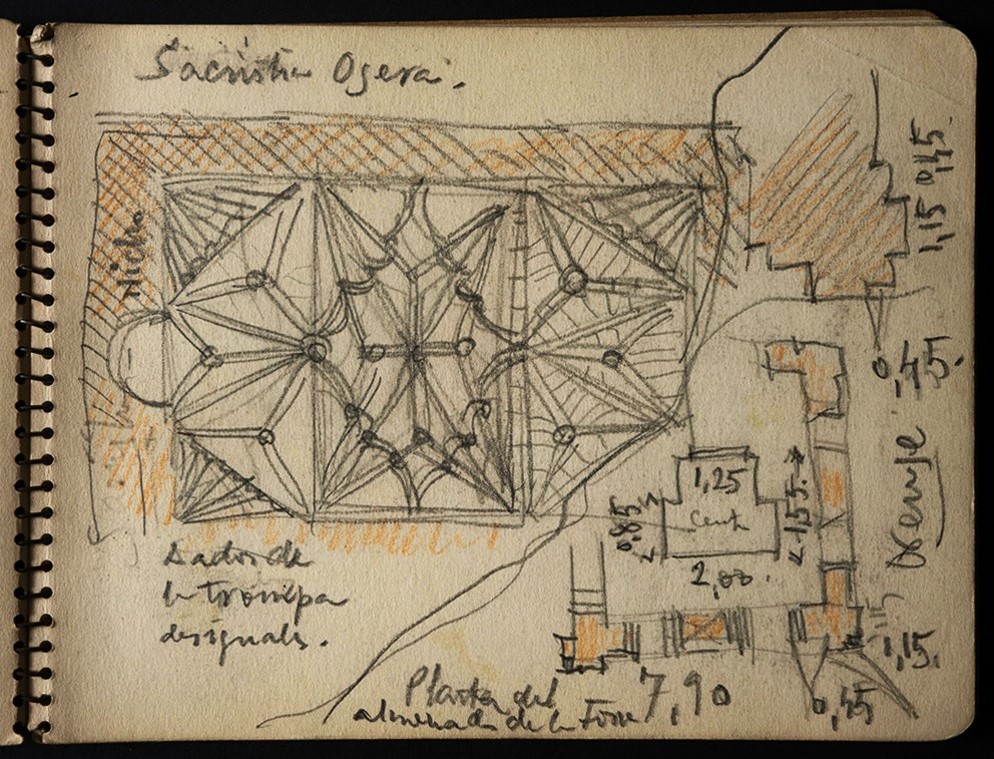 Sacristia Osera.
Nicho
Lados de
la trompa
desiguals.
Planta del
almenado de la Torre
7,90
1,15 0,45.
0,45.
1,25
Cent
0,85
2,00.
1,55.
1,15.
0,45